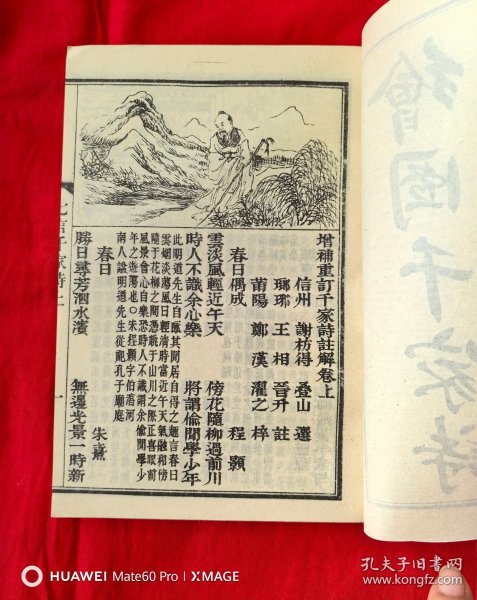 繪圖千家詩
增補重訂千家詩註解卷上
信州 謝枋得 疊山 選
瑯琊 王相 晉升 註
莆陽 鄭漢 濯之 梓
春日偶成 程顥
雲淡風輕近午天 傍花隨柳過前川
時人不識余心樂 將謂偷閒學少年
此明道先生自賦其閒居自得之趣言春日
雲烟淡蕩風日輕清時當近午天氣融和傍
隨于花柳之間憑眺于山川之際正喜眼前
風景會心自樂恐時人不識謂余偷閒學少
年之遊蕩也○宋程顥字伯淳河
南人諡明道先生從祀孔子廟庭
春日 朱熹
勝日尋芳泗水濱 無邊光景一時新
千家詩上
一
HUAWEI Mate60 Pro | XMAGE
孔夫子旧书网
www.kongfz.com